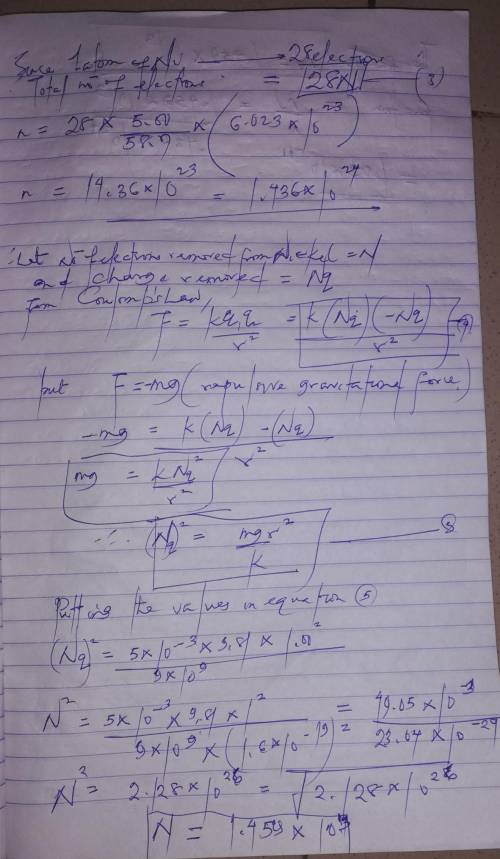 Since 1 atom of Ni → 28 electrons
Total no of electrons = 28 × N — (3)
n = 28 × 5.00/58.7 × (6.023 × 10^23)
n = 14.36 × 10^23 = 1.436 × 10^24
Let no electrons removed from Nickel = N
and charge removed = Nq
from Coulomb's law,
F = kq₁q₂/r² = k(Nq)(-Nq)/r²
but F = -mg (repulsive gravitational force)
-mg = k(Nq) - (Nq)/r²
mg = kNq²/r²
∴ (Nq)² = mgr²/k
Putting the values in equation (5)
(Nq)² = 5 × 10^-3 × 9.81 × 1.0²/9 × 10^9
N² = 5 × 10^-3 × 9.81 × 1²/9 × 10^9 × (1.6 × 10^-19)² = 49.05 × 10^-3/23.04 × 10^-29
N² = 2.128 × 10^26 = √2.128 × 10^26
N = 1.459 × 10